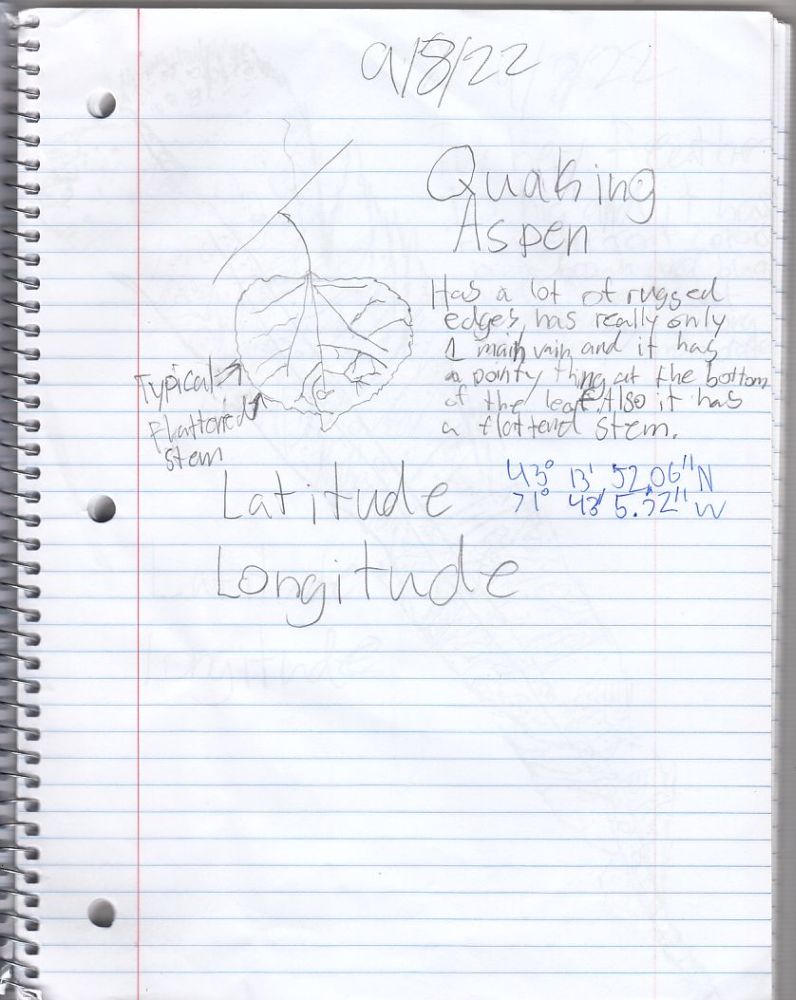 9/8/22
Quaking
Aspen
Has a lot of rugged
edges, has really only
1 main vain and it has
a pointy thing at the bottom
of the leaf. Also it has
a flattend stem.
Typical
flattoned
stem
Latitude
43° 13' 52.06" N
71° 43' 5.52" W
Longitude